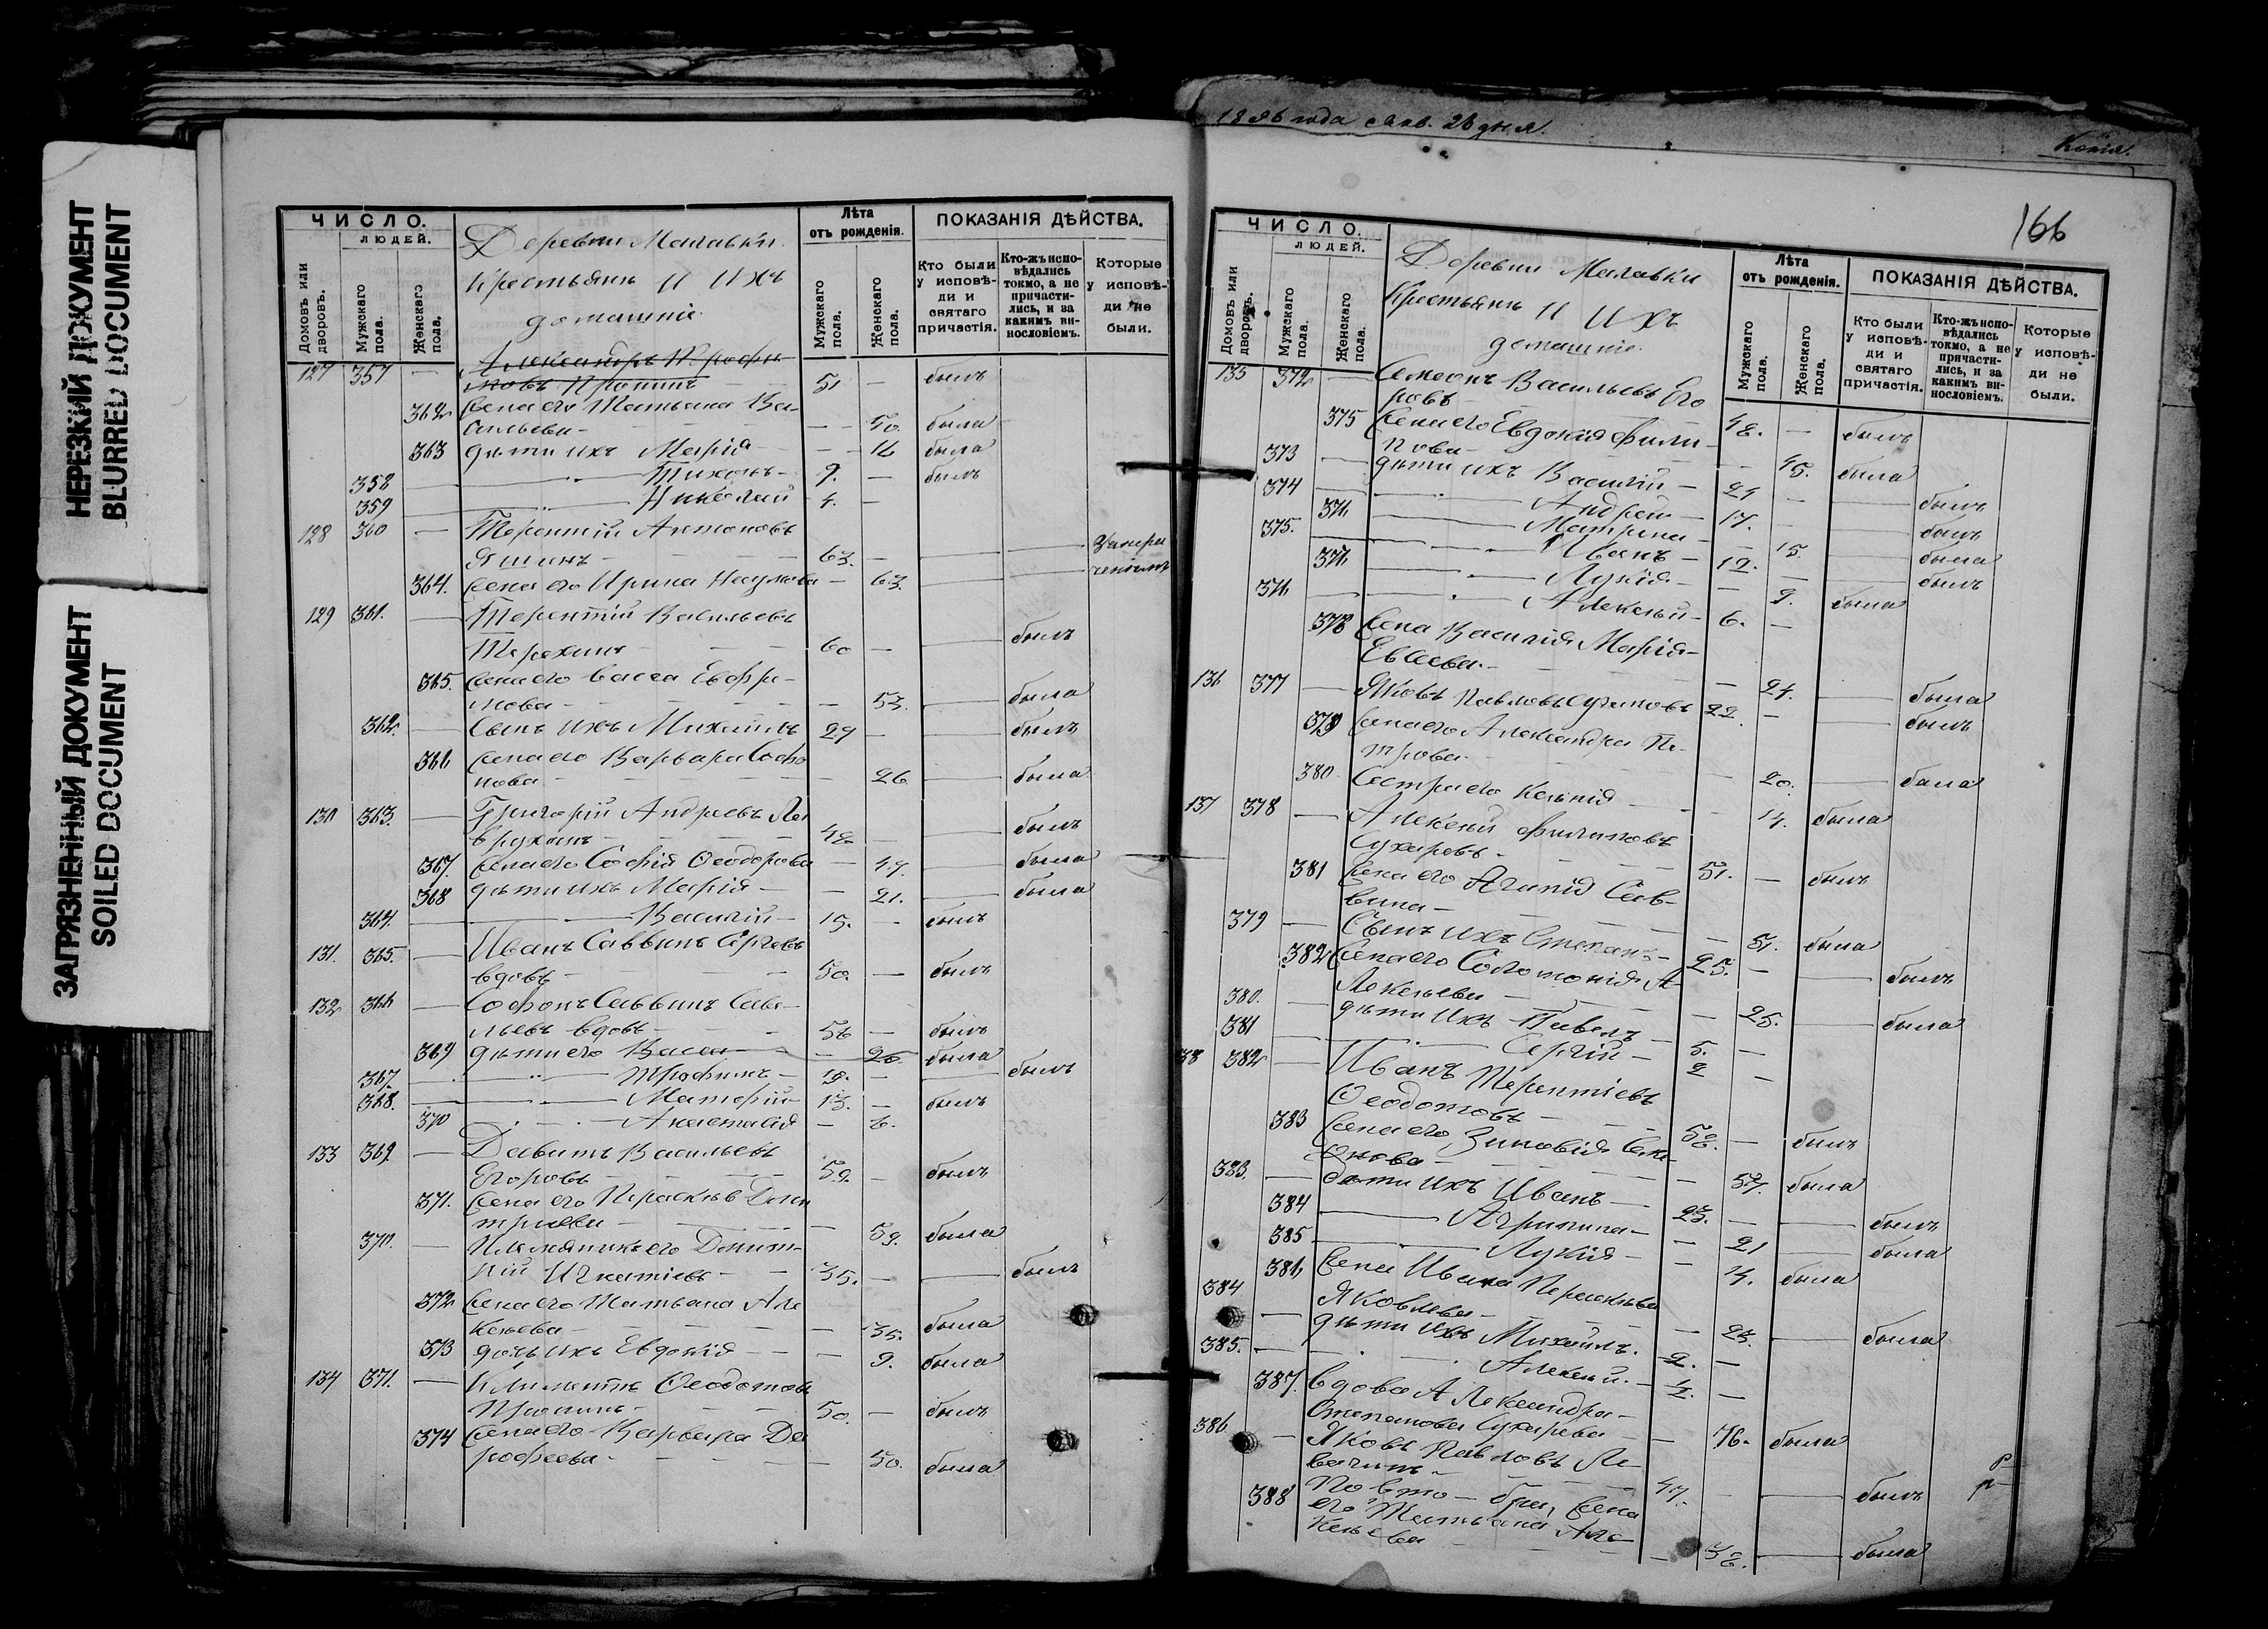 НЕРЕЗКИЙ ДОКУМЕНТ
BLURRED DOCUMENT
ЗАГРЯЗНЕННЫЙ ДОКУМЕНТ
SOILED DOCUMENT
ЧИСЛО.
ЛЮДЕЙ.
Домовъ или дворовъ.
Мужскаго пола.
Женскаго пола.
Деревни
Крестьяне и ихъ
домашніе.
Лѣта
отъ рожденія.
Мужскаго пола.
Женскаго пола.
ПОКАЗАНІЯ ДѢЙСТВА.
Кто были у исповѣ-ди и святаго причастія.
Кто-жъ испо-вѣдались токмо, а не причасти-лись, и за какимъ ви-нословіемъ.
Которые у исповѣ-ди не были.
127 357 — Александръ
51 — былъ
362 жена его Татьяна Ва-
сильева — 50. была
363 дѣти ихъ Марія — была
358 Тихонъ — 9. — былъ
359 Николай 4. —
128 360 — Терентій Антоновъ
63. —
364. жена его Ирина Наумова — 63.
129 361. — Терентій Васильевъ
Терехинъ 60 — былъ
365. жена его Васса
53. была
362. — Сынъ ихъ Михаилъ 29 — былъ
366 жена его Варвара Софо
нова — 26 была
130 363. — Григорій Андреевъ
48 былъ
367. жена его Софія Ѳеодорова — 47. была
368 дѣти ихъ Марія — 21. была
364. Василій — 15. — былъ
131. 365. — Иванъ Саввинъ
вдовъ — 50. — былъ
132 366 — Софонъ Саввинъ Саве-
льевъ вдовъ — 56 — былъ
369 дѣти его Васса — 26. была
367. Трофимъ — 18. — былъ
368. 13. — былъ
370 Анастасія — 6.
133 369 — Давидъ Васильевъ
Егоровъ 59. — былъ
371. жена его Параскева Дими
тріева — 59. была
370. — Племянникъ его Димит-
рій Игнатіевъ — 35. — былъ
372 жена его Татьяна Але
ксѣева — 35. была
373 дочь ихъ Евдокія — 9. была
134 371. — Климентъ Ѳеодотовъ
Пронинъ — 50. — былъ
374 жена его Варвара До
рофеева — 50. была
1896 года Янв. 26 дня.
Копія.
166
ЧИСЛО.
ЛЮДЕЙ.
Домовъ или дворовъ.
Мужскаго пола.
Женскаго пола.
Деревни
Крестьяне и ихъ
домашніе.
Лѣта
отъ рожденія.
Мужскаго пола.
Женскаго пола.
ПОКАЗАНІЯ ДѢЙСТВА.
Кто были у исповѣ-ди и святаго причастія.
Кто-жъ испо-вѣдались токмо, а не причасти-лись, и за какимъ ви-нословіемъ.
Которые у исповѣ-ди не были.
135 372 — Симеонъ Васильевъ Его
ровъ — 48. — былъ
375 жена его Евдокія Фили-
пова — 45. была
373 — дѣти ихъ Василій — былъ
374 Андрей — 17. — былъ
Матрона — 15. была
375. Иванъ — 12. — былъ
Лукія — 9. была
Алексѣй — 6. —
378 жена Василія Марія
Евсеева — 24. была
136 377 — Яковъ Павловъ 22. — былъ
379 жена его Александра Пе-
трова — 20. была
380 Сестра его Ксенія — 14. была
137 378 — Алексѣй Филиповъ
Сухаревъ. 51. — былъ
381 жена его Агапія Сав-
вина — 51. была
379 — Сынъ ихъ Степанъ — 25. — былъ
382 жена его Соломонія А
лексѣева — 25. была
380. — дѣти ихъ Павелъ — 5. —
381 Сергій — 2 —
38 382 — Иванъ Терентіевъ
Ѳеодотовъ — 58. — былъ
383 жена его Зиновія
57. была
383. — дѣти ихъ Иванъ — 23. — былъ
384 Агрипина — 21 была
385 Лукія — 14. была
386 жена Ивана Параскева
Яковлева — 23. была
384 — дѣти ихъ Михаилъ. 2. —
385. — Алексѣй. —
387. вдова Александра
Степанова Сухарева — 76. была
386 — Яковъ Павловъ
47. — былъ
388 жена
его Татьяна Але
ксѣева — 38. была